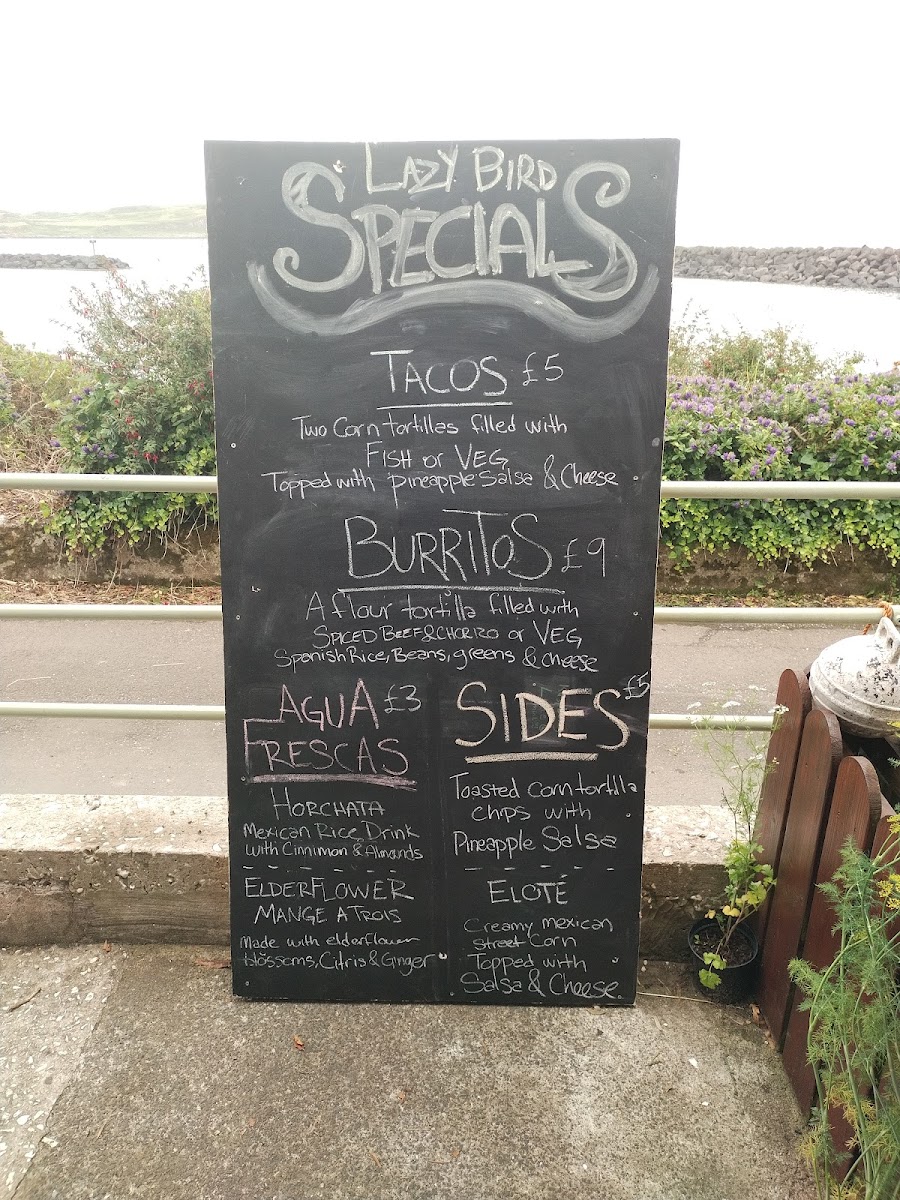 LAZY BIRD
SPECIALS
TACOS £5
Two Corn tortillas filled with
FISH or VEG
Topped with pineapple salsa & Cheese
BURRITOS £9
A flour tortilla filled with
SPICED BEEF & CHORIZO or VEG
Spanish Rice, Beans, greens & cheese
AGUA £3
FRESCAS
HORCHATA
Mexican Rice Drink
with Cinnimon & Almonds
ELDERFLOWER
MANGE A TROIS
Made with elderflower
blossems, Citris & Ginger
SIDES £5
Toasted corn tortilla
chips with
Pineapple Salsa
ELOTÉ
Creamy mexican
street Corn
Topped with
Salsa & Cheese